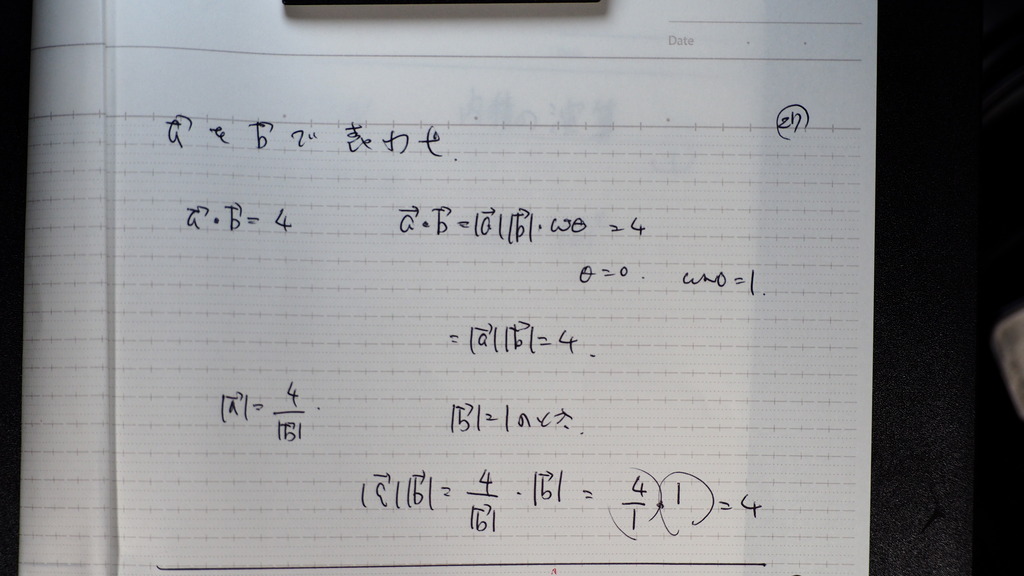 Date
a⃗ を b⃗ で 表わせ.
a⃗・b⃗ = 4
a⃗・b⃗ = |a⃗||b⃗|・cosθ = 4
θ = 0. cos0 = 1.
= |a⃗||b⃗| = 4.
|a⃗| = 4/|b⃗|.
|b⃗| = 1のとき.
|a⃗||b⃗| = 4/|b⃗| ・ |b⃗| = (4/1)・(1) = 4